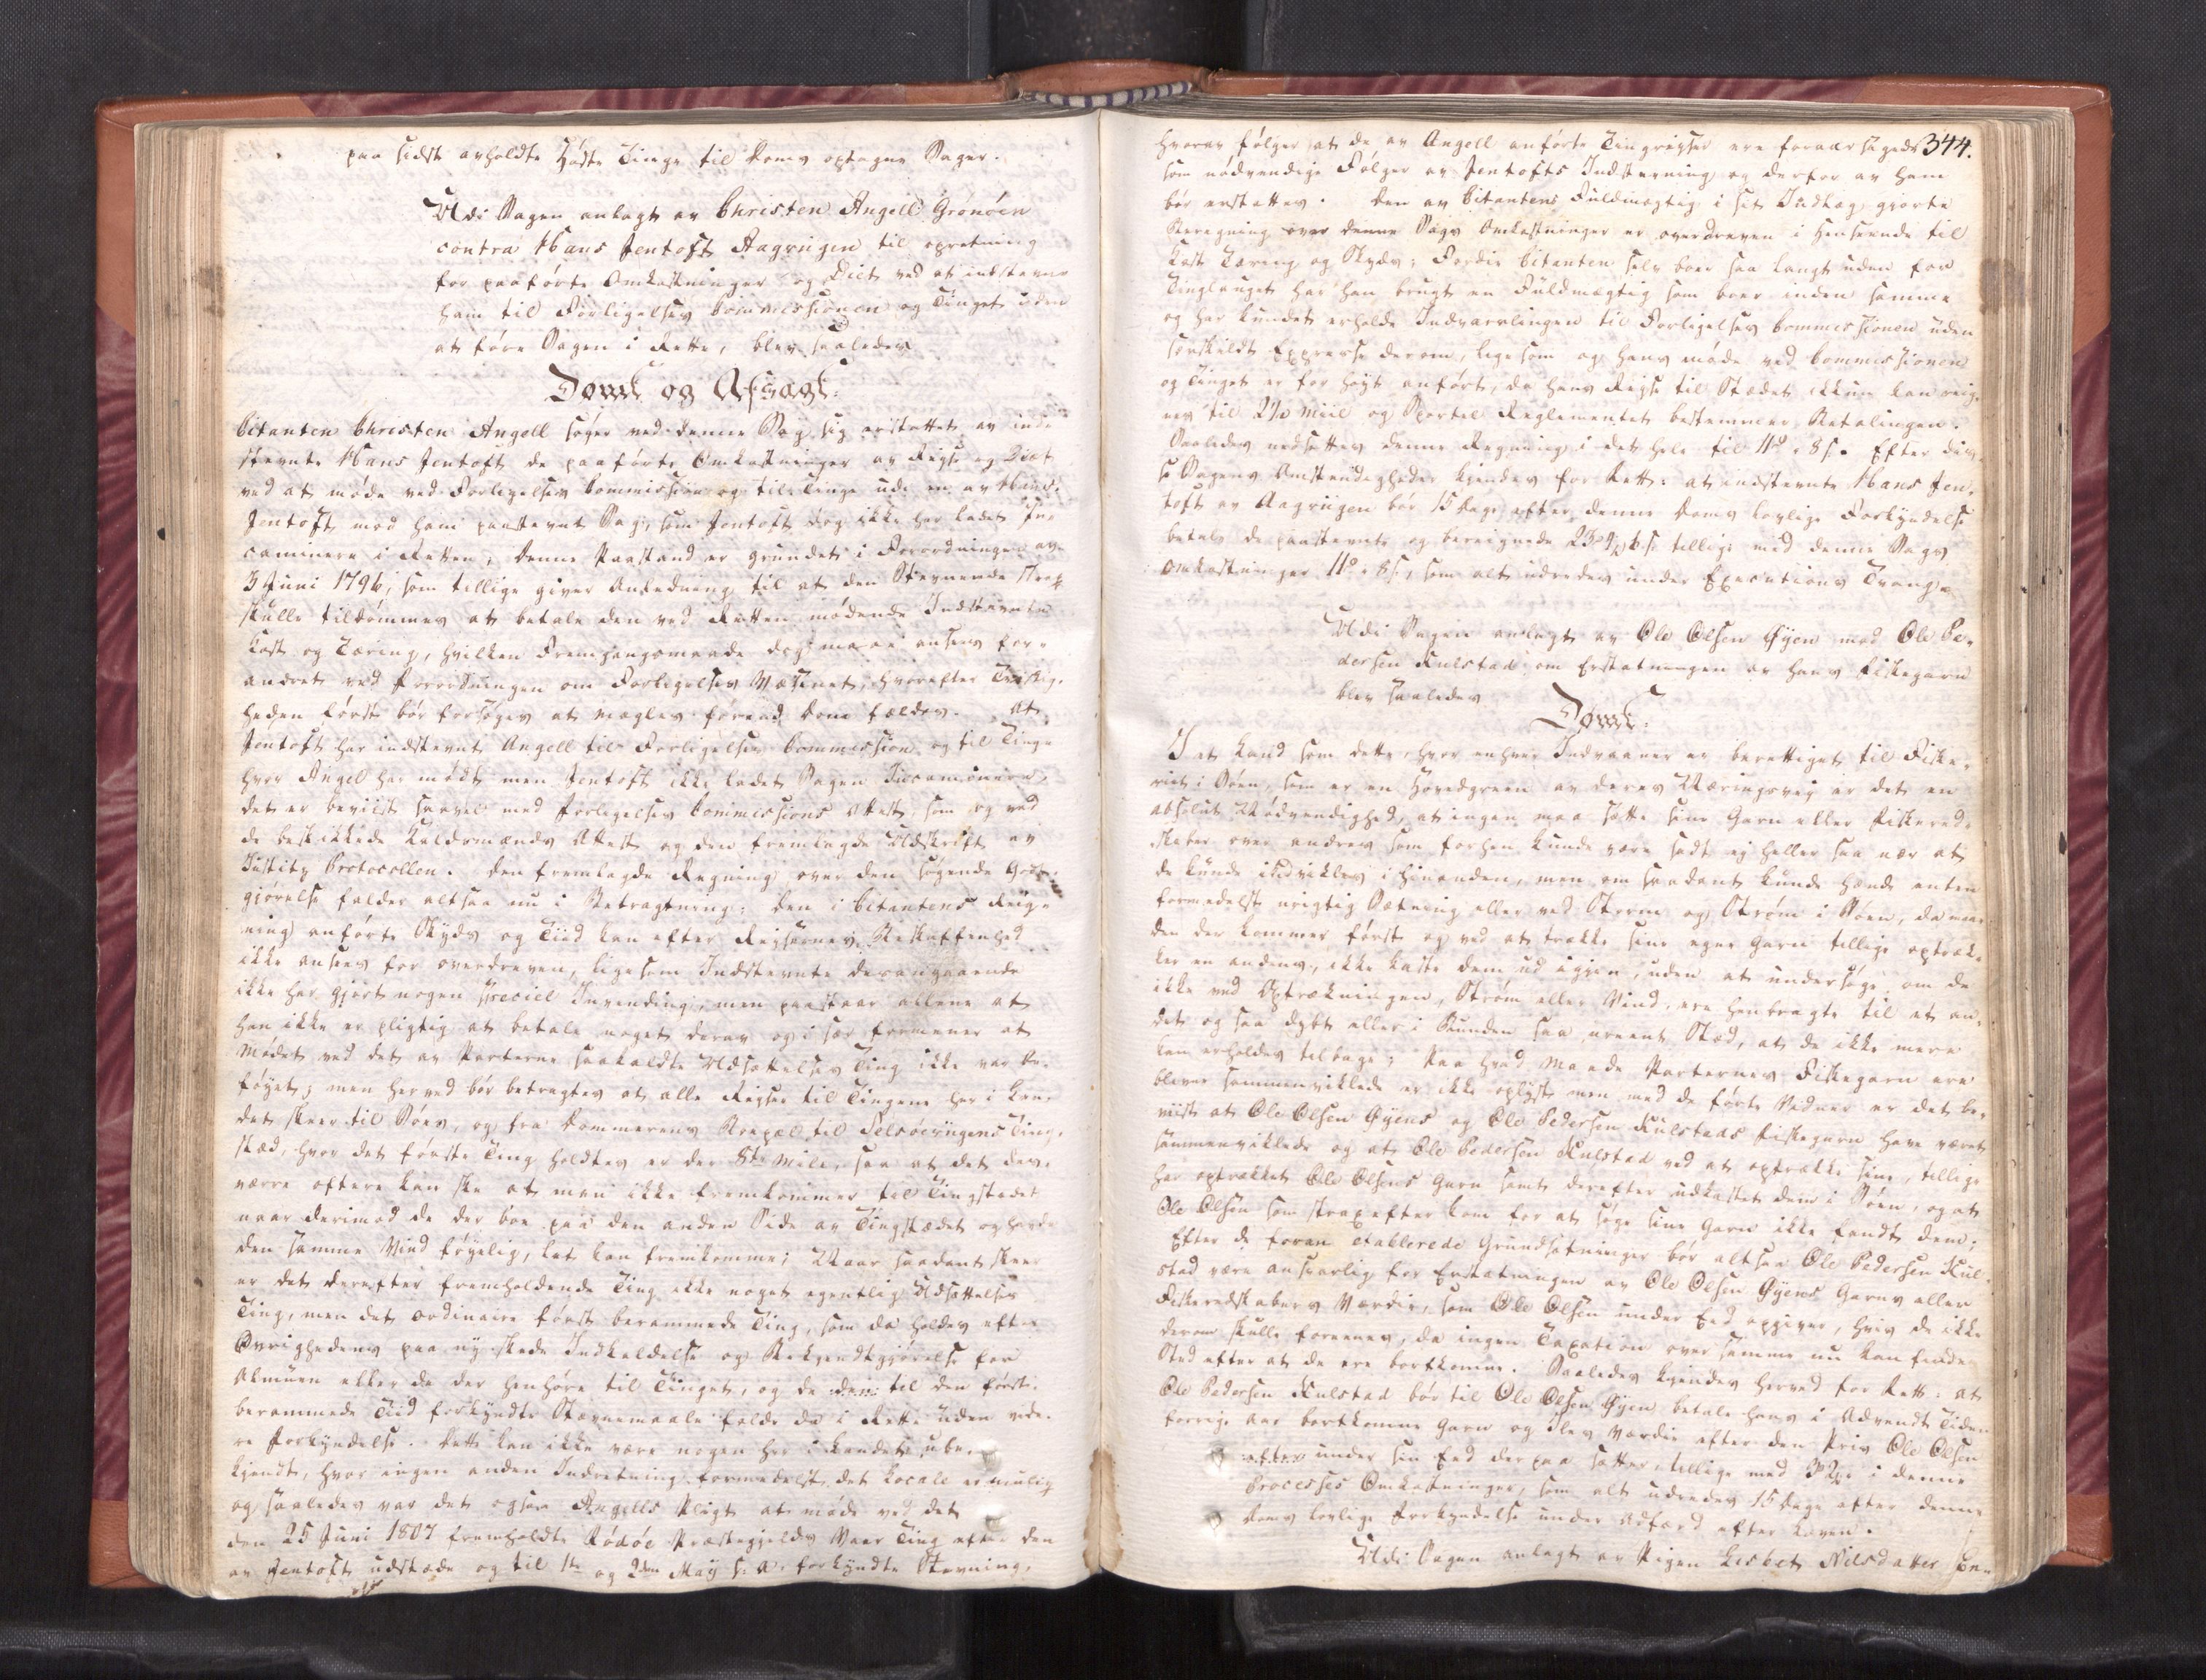 paa sidst avholdte Høste Tinge til Doms optagne Sager.
Udi Sagen anlagt av Christen Angell Grønøen
contra Hans Jentoft Aagvigen til opretning
for paaførte Omkostninger og Diet ved at indstevne
ham til Forligelses Commissionen og Tinget uden
at føre Sagen i Rette, blev saaledes
Dømt og Afsagt:
Citanten Christen Angell søger ved denne Sag sig erstattet av ind-
stevnte Hans Jentoft de paaførte Omkostninger av Reyse og Diæt
ved at møde ved Forligelses Commission og til Tinge udi en av Hans
Jentoft mod ham paastevnt Sag, som Jentoft dog ikke har ladet In-
caminere i Retten; denne Paastand er grundet i Forordningen av
3 Juni 1796, som tillige giver Anledning til at den Stevnende strax
skulle tildømmes at betale den ved Retten mødende Indstevnte
Kost og Tæring, hvilken Fremgangsmaade dog maae ansees for-
andret ved Forordningen om Forligelses Væsenet, hvorefter Tvistig-
heden først bør forsøges at mægles førend Dom fældes. At
Jentoft har indstevnt Angell til Forligelses Commission og til Tinge
hvor Angel har mødt men Jentoft ikke ladet Sagen Incaminere,
det er beviist saavel med Forligelses Commissions Attest, som og ved
de beskikkede Kaldsmænds Attest og den fremlagde Udskrift av
Justitz Protocollen. Den fremlagde Regning over den søgende Godt-
gjørelse falder altsaa nu i Betragtning: den i Citantens Reig-
ning anførte Skyds og Tiid kan efter Reysernes Beskaffenhed
ikke ansees for overdreven, ligesom Indstevnte desangaaende
ikke har gjort nogen speciel Invending, men paastaar allene at
han ikke er pligtig at betale noget derav og i sær formener at
Mødet ved det av Parterne saakaldte Udsættelses Ting ikke var be-
føyet; men herved bør betragtes at alle Reyser til Tingene her i Lan-
det skeer til Søes, og fra Dommerens Bopæl til Selsøevigens Ting-
stæd, hvor det første Ting holdtes er der 8te Mile, saa at det des-
værre oftere kan ske at man ikke fremkommer til Tingstædet
naar derimod de der boe paa den anden Side av Tingstædet og havde
den samme Vind føyelig, let kan fremkomme; Naar saadant skeer
er det derefter fremholdende Ting ikke noget egentlig Udsættelses
Ting, men det ordinaire først berammede Ting, som da holdes efter
Øvrighedens paa ny skede Indkaldelse og Bekjendtgjørelse for
Almuen eller de der henhøre til Tinget, og de :den: til den først-
berammede Tiid forkyndte Stevnemaale falde da i Rette uden vide-
re Forkyndelse. Dette kan ikke være nogen her i Landet ube-
kjendt, hvor ingen anden Indretning formedelst det Locale er mulig
og saaledes var det ogsaa Angells Pligt at møde ved det
den 25 Juni 1807 fremholdte Rødøe Præstegjelds Vaar Ting efter den
av Jentoft udstæde og til 1te og 2den May s: A: forkyndte Stevning,
344.
hvorav følger at de av Angell anførte Tingreyser ere foraarsagede
som nødvendige Følger av Jentofts Indstevning og derfor av ham
bør erstattes. Den av Citantens Fuldmægtig i sit Indlæg gjorte
Beregning over denne Sags Omkostninger er overdreven i Henseende til
Kost Tæring og Skyds; Fordie Citanten selv boer saa langt uden for
Tinglauget har han brugt en Fuldmægtig som boer inden samme
og har kundet erholde Indvarslingen til Forligelses Commissionen uden
særskildt Expresse derom, ligesom og hans møde ved Commissionen
og Tinget er for høyt anført, da hans Reyse til Stædet ikkun kan reig-
nes til 2½ Miil og Sportel Reglementet bestemmer Betalingen.
Saaledes nedsættes denne Regning i det hele til 11d. 8s. Efter dis-
se Sagens Omstændigheder kjendes for Ret: at indstevnte Hans Jen-
toft av Aagviigen bør 15 Dage efter denne Doms lovlige Forkyndelse
betale de paastevnte og bereignede 23d 4 6s tillige med denne Sags
Omkostninger 11d. 8s, som alt udredes under Executions Tvang.
Udi Sagen anlagt av Ole Olsen Øyen mod Ole Pe-
dersen Kulstad om Erstatningen av hans fiskegarn
blev saaledes
Dømt:
I et Land som dette, hvor enhver Indvaaner er berettiget til Fiske-
riet i Søen, som er en Hovedgreen av deres Næringsvej er det en
absolut Nødvendighed, at ingen maa sætte sine Garn eller fiskered-
skaber over andres som forhen kunde være sadt ej heller saa nær at
de kunde indvikles i hinanden, men om saadant kunde hænde enten
formedelst urigtig Sætning eller ved Storm og Strøm i Søen, da maae
den der kommer først og ved at trække sine egne Garn tillige optræk-
ker en andens, ikke kaste dem ud igjen, uden at undersøge om de
ikke ved Optrækningen, Strøm eller Vind, ere henbragte til et an-
det og saa dybt eller i Bunden saa ureent Stæd, at de ikke mere
kan erholdes tilbage; Paa hvad Maade Parternes Fiskegarn ere
blevne sammenviklede er ikke oplyst men med de førte Vidner er det be-
viist at Ole Olsen Øyens og Ole Pedersen Kulstads fiskegarn have været
sammenviklede og at Ole Pedersen Kulstad ved at optrække sine, tillige
har optrækket Ole Olsens Garn samt derefter udkastet dem i Søen, og at
Ole Olsen som strax efter kom for at søge sine Garn ikke fandt dem;
Efter de foran etablerede Grundsætninger bør altsaa Ole Pedersen Kul-
stad være ansvarlig for Erstatningen av Ole Olsen Øyens Garns eller
Fiskeredskabers Værdie, som Ole Olsen under Eed opgiver, hvis de ikke
derom skulle foreenes, da ingen Taxation over samme nu kan finde
Sted efter at de ere bortkomne. Saaledes kjendes herved for Ret: at
Ole Pedersen Kulstad bør til Ole Olsen Øyen betale hans i Advendt Tiden
forrige Aar bortkomne Garn og Iles Værdie efter den Priis Ole Olsen
under sin Eed derpaa sætter, tillige med i denne
Processes Omkostninger, som alt udredes 15 Dage efter denne
Doms lovlige Forkyndelse under Adfærd efter Loven.
Udi Sagen anlagt av Pigen Lisbet Nilsdatter